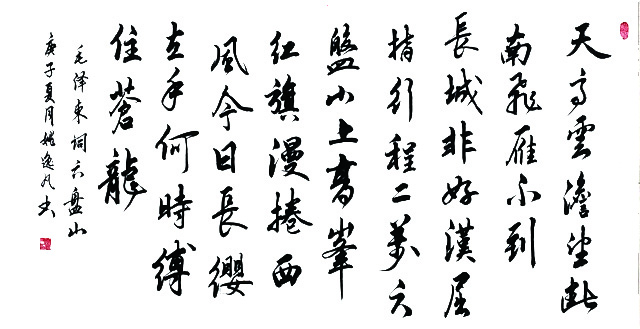 天高雲澹望断
南飛雁不到
長城非好漢屈
指行程二萬六
盤山上高峯
紅旗漫捲西
風今日長纓
在手何時縛
住蒼龍
毛泽東词六盘山
庚子夏月姚逸凡书